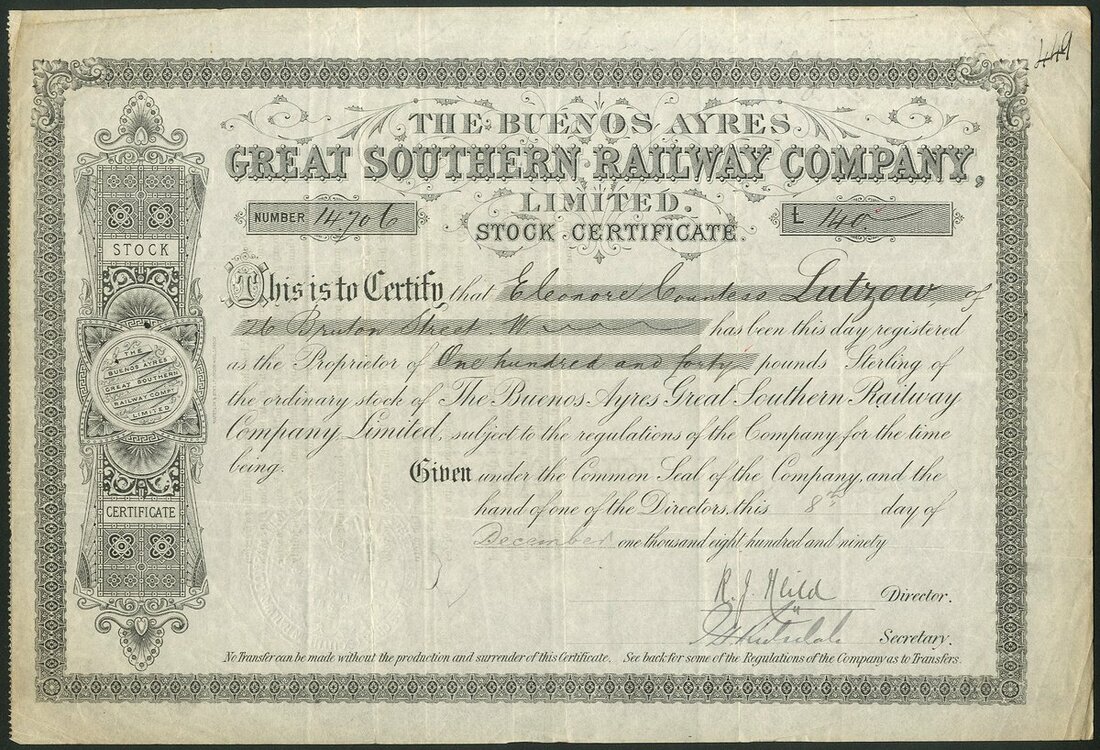 449
THE BUENOS AYRES
GREAT SOUTHERN RAILWAY COMPANY,
LIMITED.
NUMBER 14706
£ 140.
STOCK CERTIFICATE.
STOCK
This is to Certify that Eleonore Countess Lutzow of
26 Bruton Street W has been this day registered
as the Proprietor of One hundred and forty pounds Sterling of
the ordinary stock of The Buenos Ayres Great Southern Railway
Company Limited, subject to the regulations of the Company for the time
being.
THE
BUENOS AYRES
GREAT SOUTHERN
RAILWAY COMPY
LIMITED
Given under the Common Seal of the Company, and the
hand of one of the Directors, this 8th day of
December one thousand eight hundred and ninety
CERTIFICATE
Director.
Secretary.
No Transfer can be made without the production and surrender of this Certificate. See back for some of the Regulations of the Company as to Transfers.